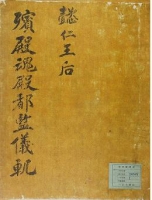 懿仁王后
殯殿魂殿都監儀軌